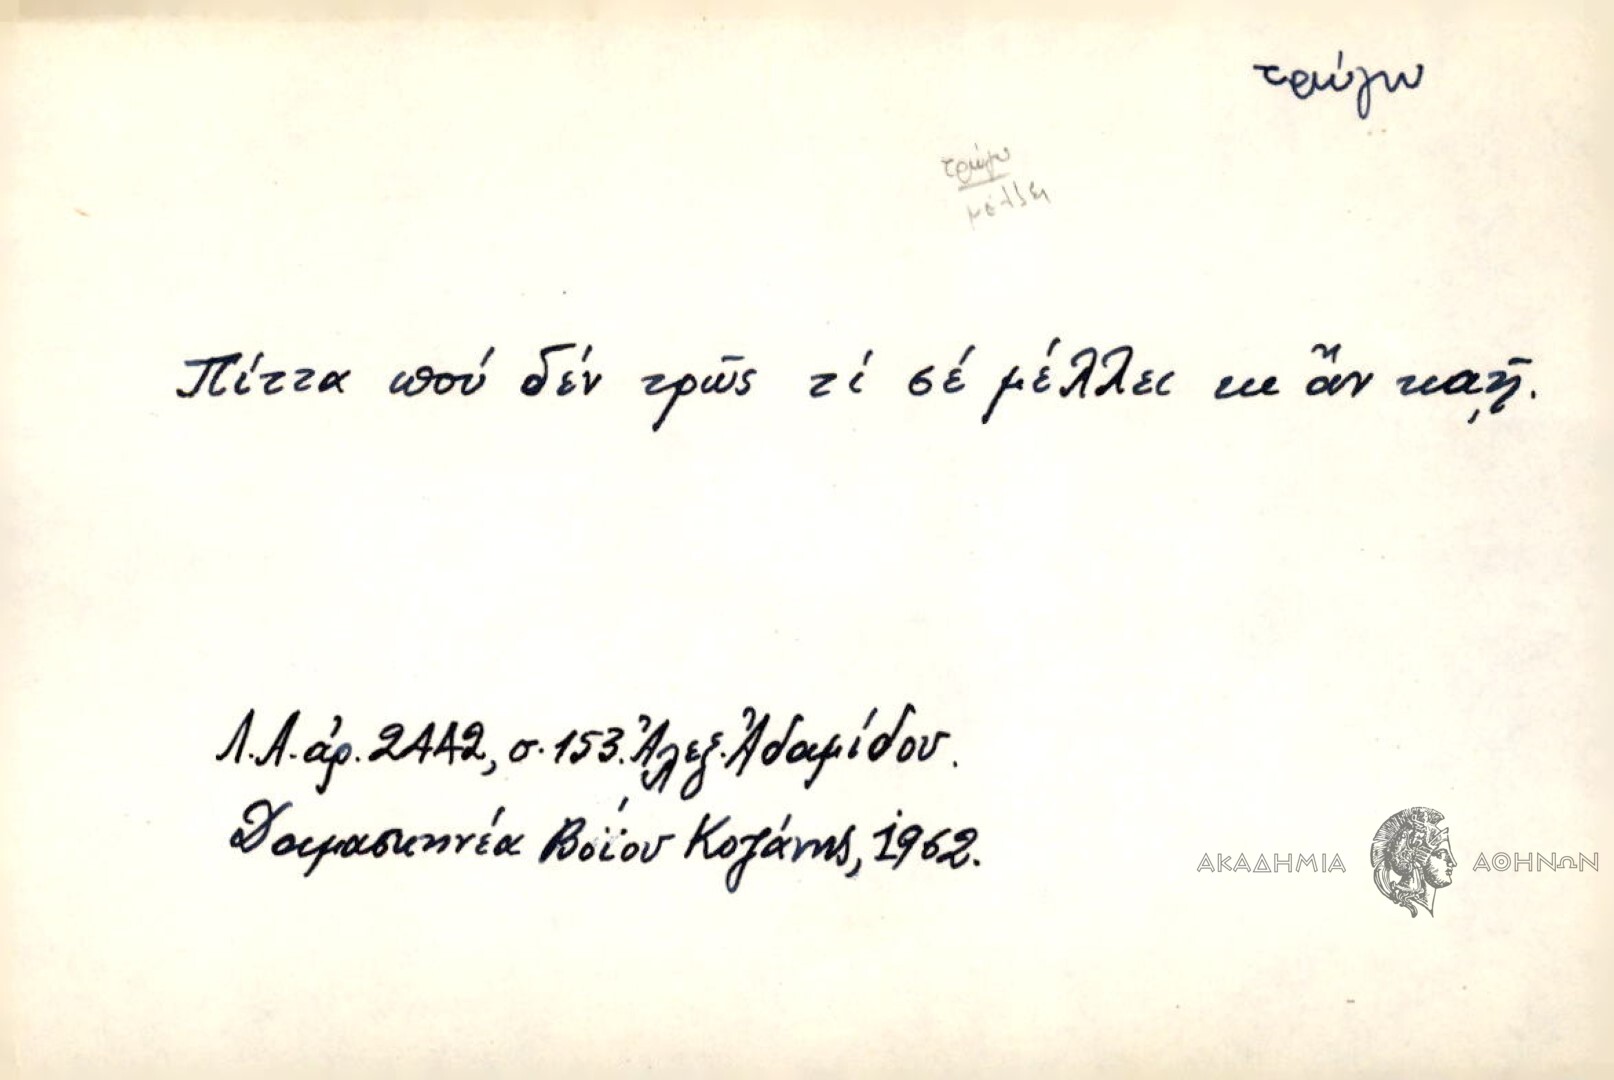 τρώγω
τρώγω
μέλλει
Πίττα πού δέν τρῶς τί σέ μέλλει κι ἄν καῇ.
Λ.Α. ἀρ. 2442, σ. 153. Ἀλεξ. Ἀδαμίδου.
Δαμασκηνέα Βοΐου Κοζάνης, 1962.
ΑΚΑΔΗΜΙΑ ΑΘΗΝΩΝ